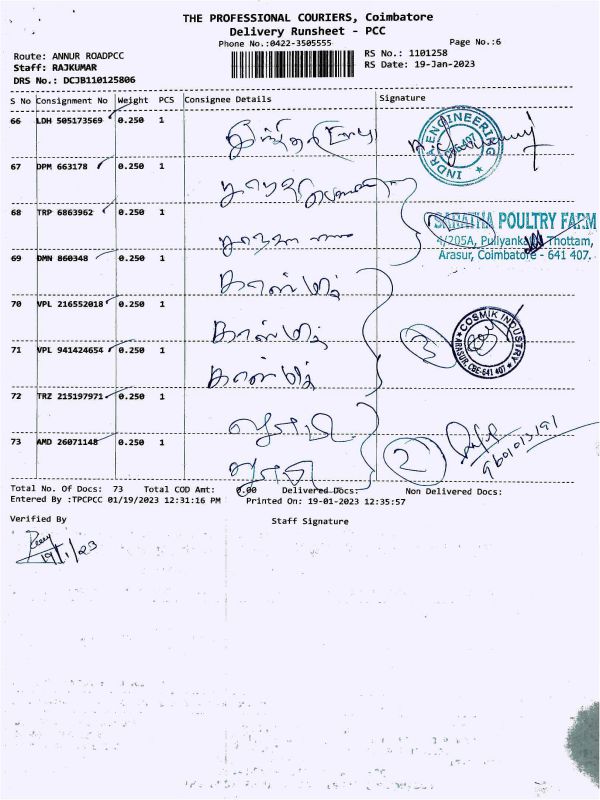 THE PROFESSIONAL COURIERS, Coimbatore
Delivery Runsheet - PCC
Phone No.:0422-3505555
Page No.:6
Route: ANNUR ROADPCC
RS No.: 1101258
Staff: RAJKUMAR
RS Date: 19-Jan-2023
DRS No.: DCJB110125806
S No Consignment No Weight PCS Consignee Details Signature
66 LDH 505173569 0.250 1
INDRA ENGINEERING CBE-407
67 DPM 663178 0.250 1
68 TRP 6863962 0.250 1
SARATHA POULTRY FARM
4/205A, Puliyankadu Thottam,
Arasur, Coimbatore - 641 407.
69 DMN 860348 0.250 1 காஸ்மிக்
70 VPL 216552018 0.250 1 காஸ்மிக்
3
COSMIK INDUSTRY
ARASUR, CBE-641 407
71 VPL 941424654 0.250 1 காஸ்மிக்
72 TRZ 215197971 0.250 1
73 AMD 26071148 0.250 1
2
9601013191
Total No. Of Docs: 73 Total COD Amt: 0.00 Delivered Docs: Non Delivered Docs:
Entered By :TPCPCC 01/19/2023 12:31:16 PM Printed On: 19-01-2023 12:35:57
Verified By Staff Signature
19/1/23